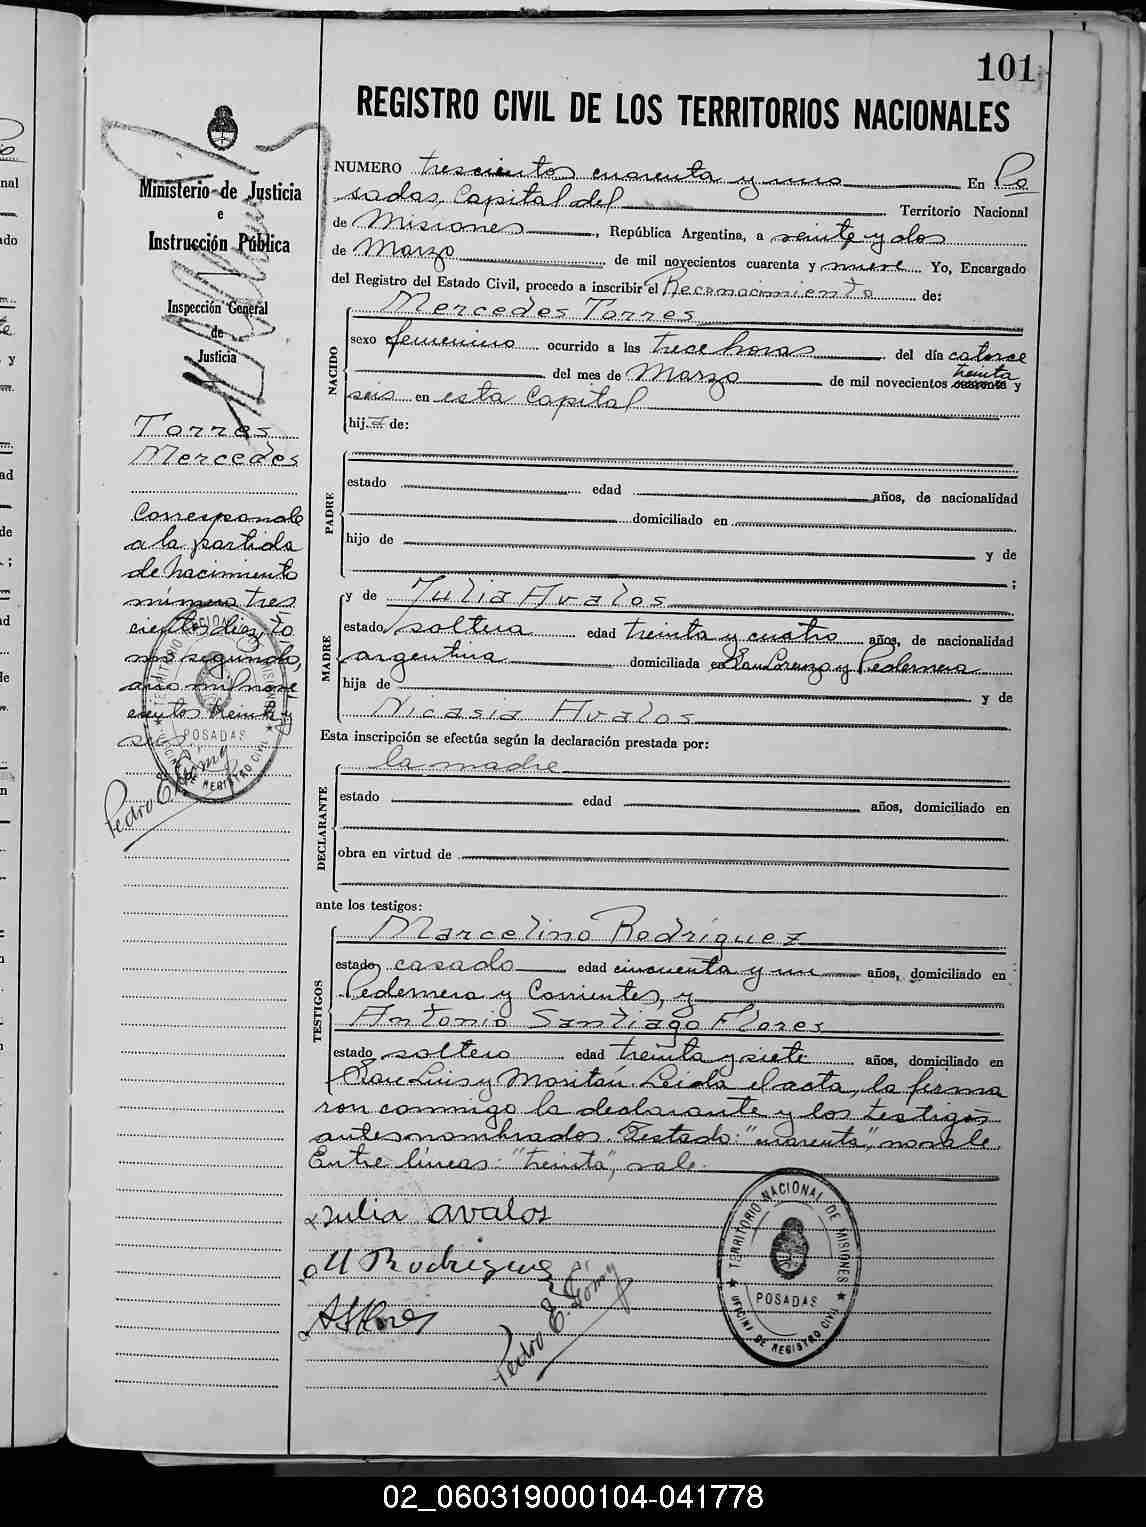 101
REGISTRO CIVIL DE LOS TERRITORIOS NACIONALES
Ministerio de Justicia
e
Instrucción Pública
Inspección General
de
Justicia
Torres
Mercedes
Corresponde
a la partida
de nacimiento
número tres
cientos diez, to
mo segundo,
año mil nove
cientos treinta y
seis
Pedro E. Gómez
TERRITORIO NACIONAL DE MISIONES
POSADAS
OFICINA DE REGISTRO CIVIL
NUMERO trescientos cuarenta y uno En Po
sadas, Capital del Territorio Nacional
de Misiones, República Argentina, a veinte y dos
de Marzo de mil novecientos cuarenta y nueve Yo, Encargado
del Registro del Estado Civil, procedo a inscribir el Reconocimiento de:
NACIDO
Mercedes Torres
sexo femenino ocurrido a las trece horas del día catorce
treinta
del mes de Marzo de mil novecientos cuarenta y
seis en esta Capital
hija de:
PADRE
estado edad años, de nacionalidad
domiciliado en
hijo de y de
;
MADRE
y de Julia Avalos
estado soltera edad treinta y cuatro años, de nacionalidad
argentina domiciliada en San Lorenzo y Pedernera
hija de y de
Nicasia Avalos
Esta inscripción se efectúa según la declaración prestada por:
DECLARANTE
la madre
estado edad años, domiciliado en
obra en virtud de
ante los testigos:
TESTIGOS
Marcelino Rodriguez
estado casado edad cincuenta y un años, domiciliado en
Pedernera y Corrientes, y
Antonio Santiago Flores
estado soltero edad treinta y siete años, domiciliado en
San Luis y Moritán. Leida el acta, la firma
ron conmigo la declarante y los testigos
antes nombrados. Testado: "cuarenta", no vale.
Entre líneas: "treinta", vale.
Julia avalos
M Rodriguez
A S Flores
Pedro E. Gómez
TERRITORIO NACIONAL DE MISIONES
POSADAS
OFICINA DE REGISTRO CIVIL
02_060319000104-041778